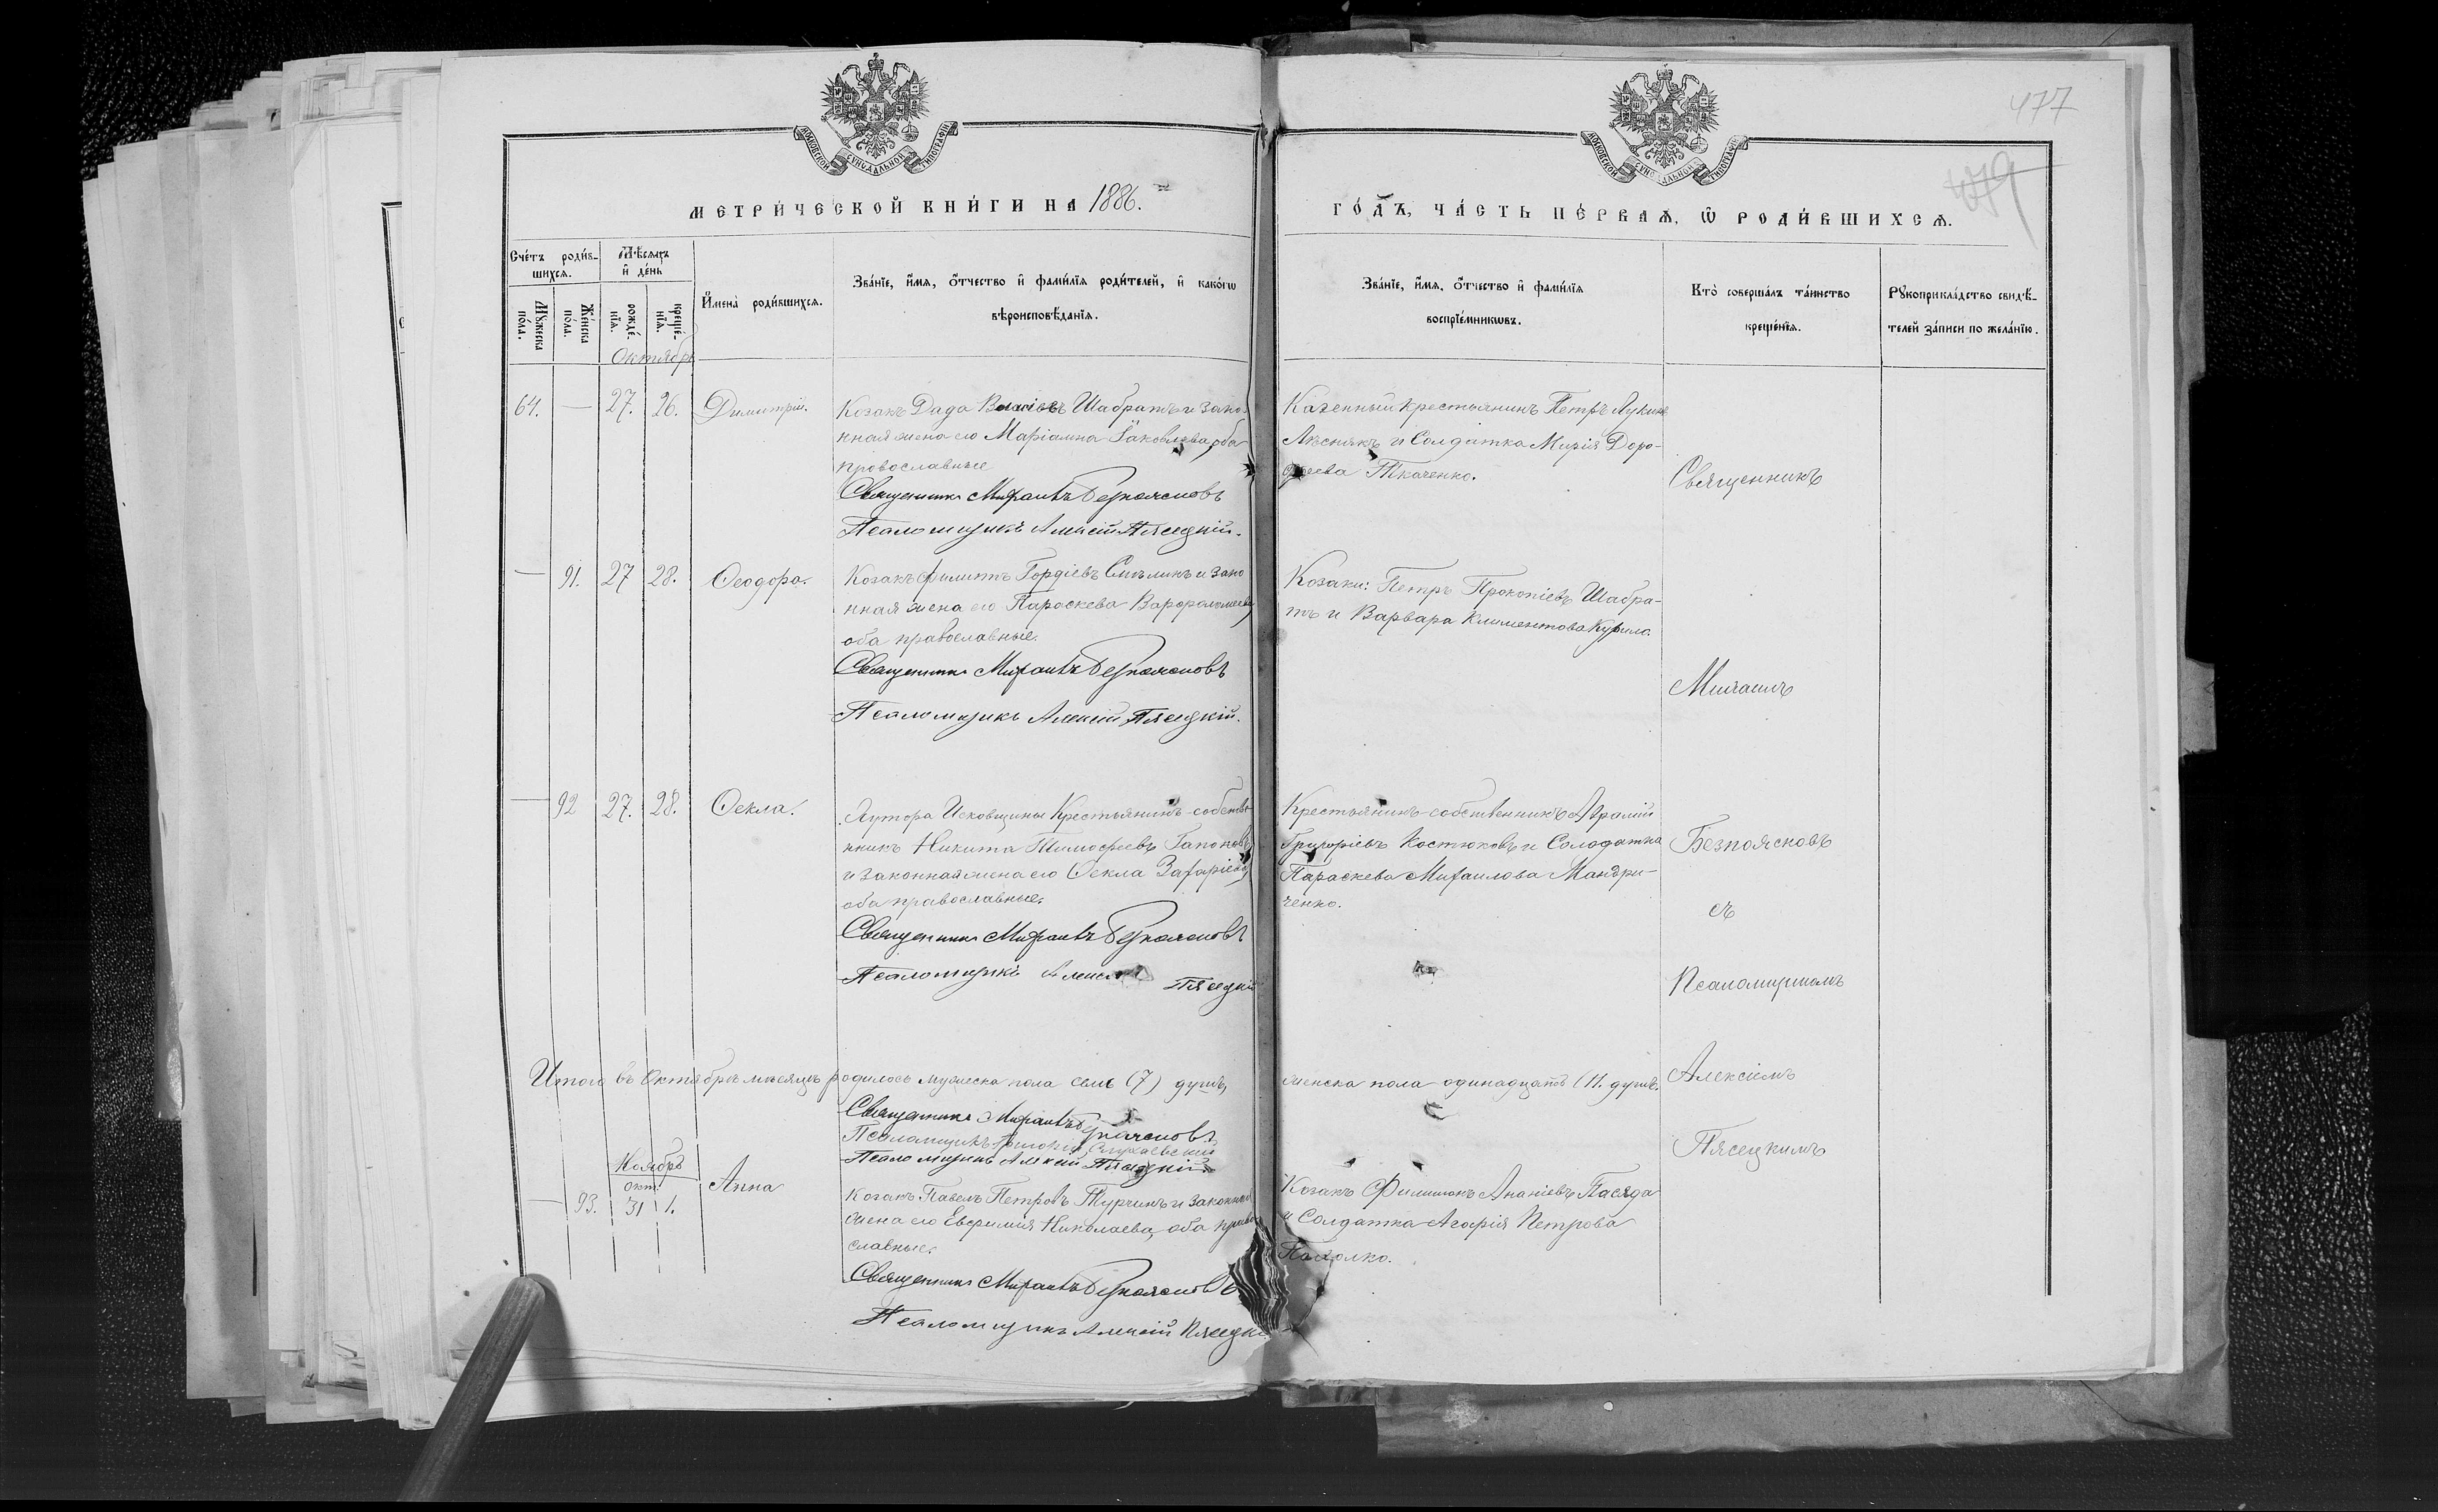 477
479
МОСКОВСКОЙ СѴНОДАЛЬНОЙ ТИПОГРАФІИ
МОСКОВСКОЙ СѴНОДАЛЬНОЙ ТИПОГРАФІИ
МЕТРИ́ЧЕСКОЙ КНИ́ГИ НА 1886.
ГО́ДЪ, ЧА́СТЬ ПЕ́РВАѦ, Ѿ РОДИ́ВШИХСѦ.
Сче́тъ роди́в-
шихсѧ.
Мѣ́сѧцъ
и҆ де́нь
Мꙋ́жеска по́ла.
Же́нска по́ла.
рожде́-нїѧ.
креще́-нїѧ.
И҆мена̀ роди́вшихсѧ.
Зва́нїе, и҆́мѧ, ѻ҆́тчество и҆ фами́лїѧ роди́телей, и҆ како́гѡ
вѣроисповѣ́данїѧ.
Зва́нїе, и҆́мѧ, ѻ҆́тчество и҆ фами́лїѧ
воспрїе́мникѡвъ.
Кто̀ соверша́лъ та́инство
креще́нїѧ.
Рꙋкоприкла́дство свидѣ́-
телей за́писи по жела́нїю.
Октябрь
64. — 27. 26. Димитрій.
Козакъ Дада Шабратъ и зако-
нная жена его Маріамна Іаковлева, оба
провославные
Священникъ Михаилъ Безпоясновъ
Псаломщикъ Алексій Пясецкій.
Казенный крестьянинъ Петръ Лукинъ
Лѣснякъ и Солдатка Марія Доро-
фѣева Ткаченко.
— 91. 27 28. Ѳеодора.
Козакъ Филиппъ Гордіевъ Смѣлинъ и зако
нная жена его Параскева Варфоломеева,
оба православные.
Священникъ Михаилъ Безпоясновъ
Псаломщикъ Алексій Пясецкій.
Козаки: Петръ Прокопіевъ Шабра-
тъ и Варвара Климентова Курило.
— 92 27. 28. Ѳекла.
Хутора Исковщины Крестьянинъ-собстве
нникъ Никита Тимофеевъ Гапоновъ
и законная жена его Ѳекла Захаріева,
оба православные.
Священникъ Михаилъ Безпоясновъ
Псаломщикъ Алексій Пясецкій
Крестьянинъ-собственникъ
Григоріевъ Костюковъ и Солодатка
Параскева Михаилова Мандри-
ченко.
Священникъ
Михаилъ
Безпоясковъ
съ
Псаломщикомъ
Алексіемъ
Пясецкимъ
Итого въ Октябрѣ мѣсяцѣ родилось мужеска пола семь (7) душъ,
женска пола одинадцать (11. душъ.
Священникъ Михаилъ Безпоясновъ
Псаломщикъ
Псаломщикъ Алексій Пясецкій
Ноябрь
окт.
— 93. 31 1. Анна
Козакъ Павелъ Петровъ Турчинъ и законная
жена его Евфимія Николаева, оба право
славные.
Священникъ Михаилъ Безпоясновъ
Псаломщикъ Алексій Пясецкій
Козакъ Филимонъ Ананіевъ Пасяда
и Солдатка Агафія Петрова